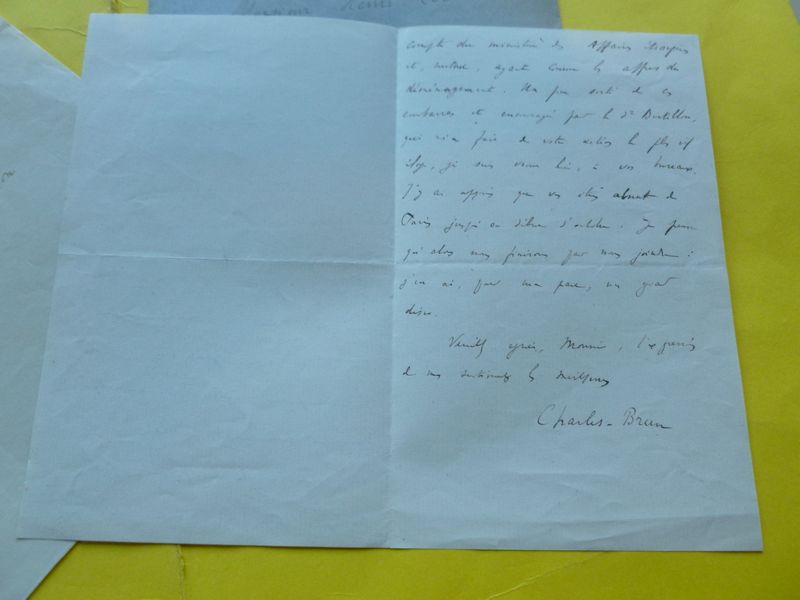 Monsieur
compte du ministère des Affaires étrangères
et, surtout, ayant connu les affres du
déménagement. Un peu sorti de ces
embarras et encouragé par le Dr Bertillon,
qui m'a fait de votre action le plus vif
éloge, je suis venu hier, à vos bureaux.
J'y ai appris que vous étiez absent de
Paris jusqu'au début d'octobre. Je pense
qu'alors nous finirons par nous joindre :
j'en ai, pour ma part, un grand
désir.
Veuillez agréer, Monsieur, l'expression
de mes sentiments les meilleurs
Charles-Brun